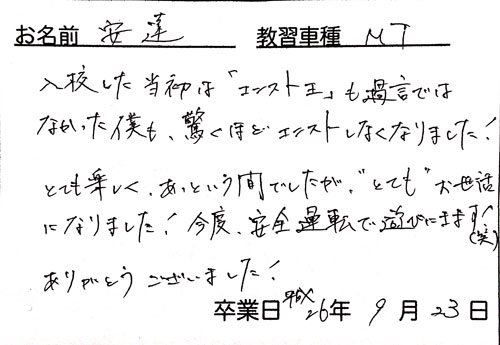 お名前 安達 教習車種 MT
入校した当初は「エンスト王」も過言では
なかった僕も、驚くほどエンストしなくなりました!
とても楽しく、あっという間でしたが、"とても"お世話
になりました!今度、安全運転で遊びにきます!(笑)
ありがとうございました!
卒業日 平成26年 9月 23日